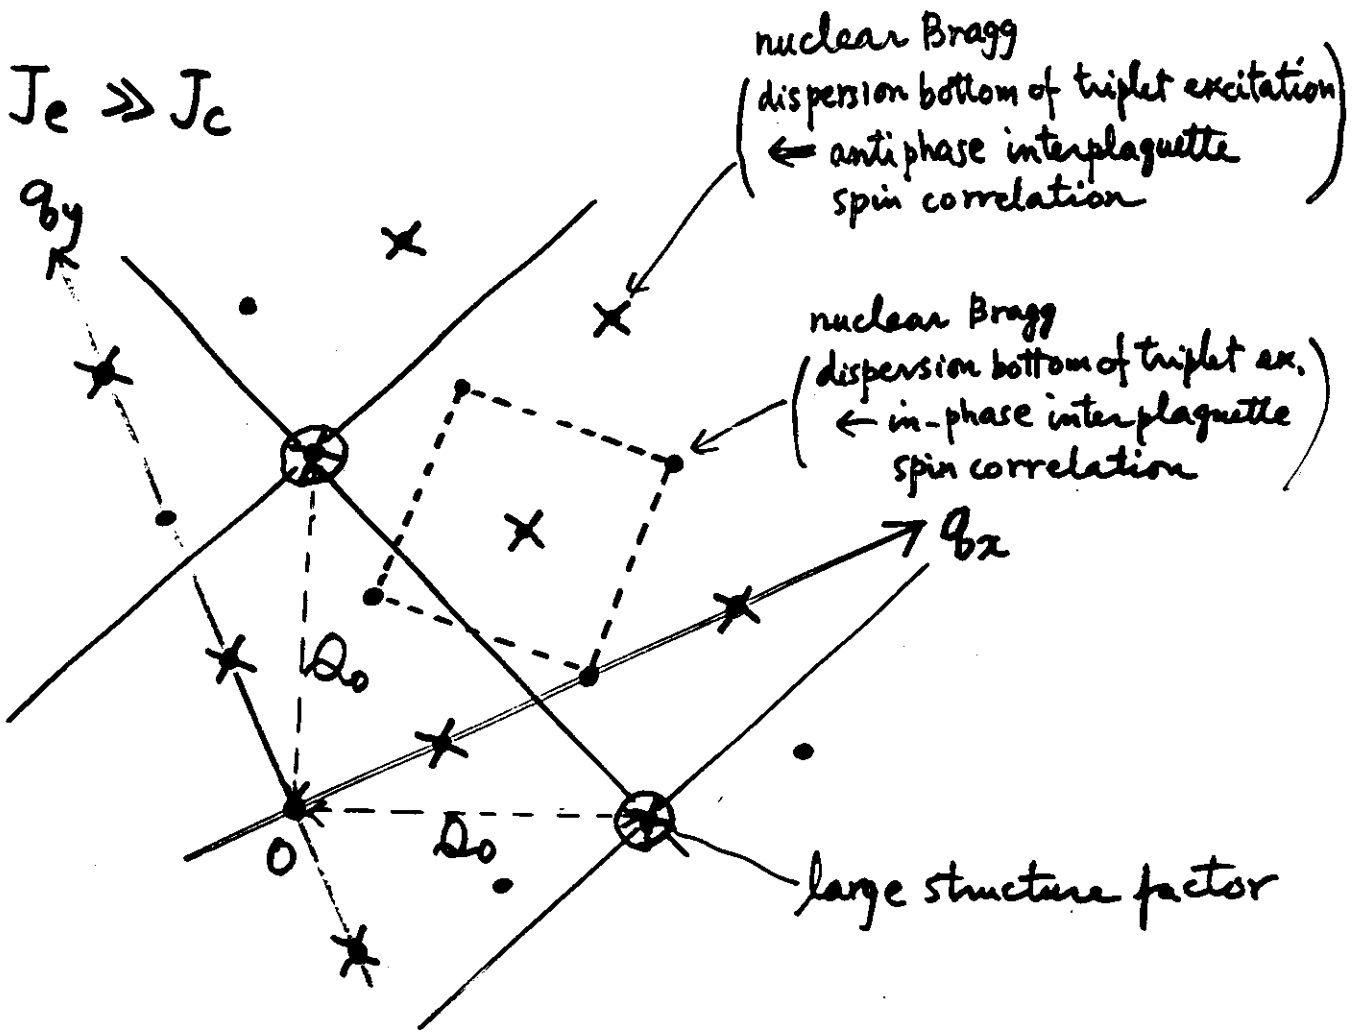 Je ≫ Jc
nuclear Bragg
(dispersion bottom of triplet excitation
⇐ antiphase interplaquette
spin correlation)
qy
nuclear Bragg
(dispersion bottom of triplet ex.
← in-phase interplaquette
spin correlation)
qx
Q₀
Q₀
0
large structure factor